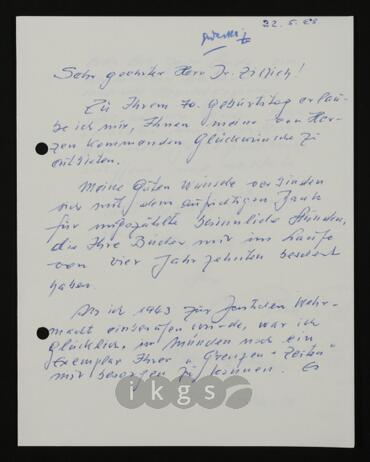 22. 5. 68
Sehr geehrter Herr Dr. Zillich!
Zu Ihrem 70. Geburtstag erlau-
be ich mir, Ihnen meine von Her-
zen kommenden Glückwünsche zu
entbieten.
Meine guten Wünsche verbinden
sich mit dem aufrichtigen Dank
für ungezählte besinnliche Stunden,
die Ihre Bücher mir im Laufe
von vier Jahrzehnten beschert
haben.
Als ich 1943 zur deutschen Wehr-
macht einberufen wurde, war ich
glücklich, in München noch ein
Exemplar Ihrer "Grenzen + Zeiten"
mir besorgen zu können. Es
ikgs